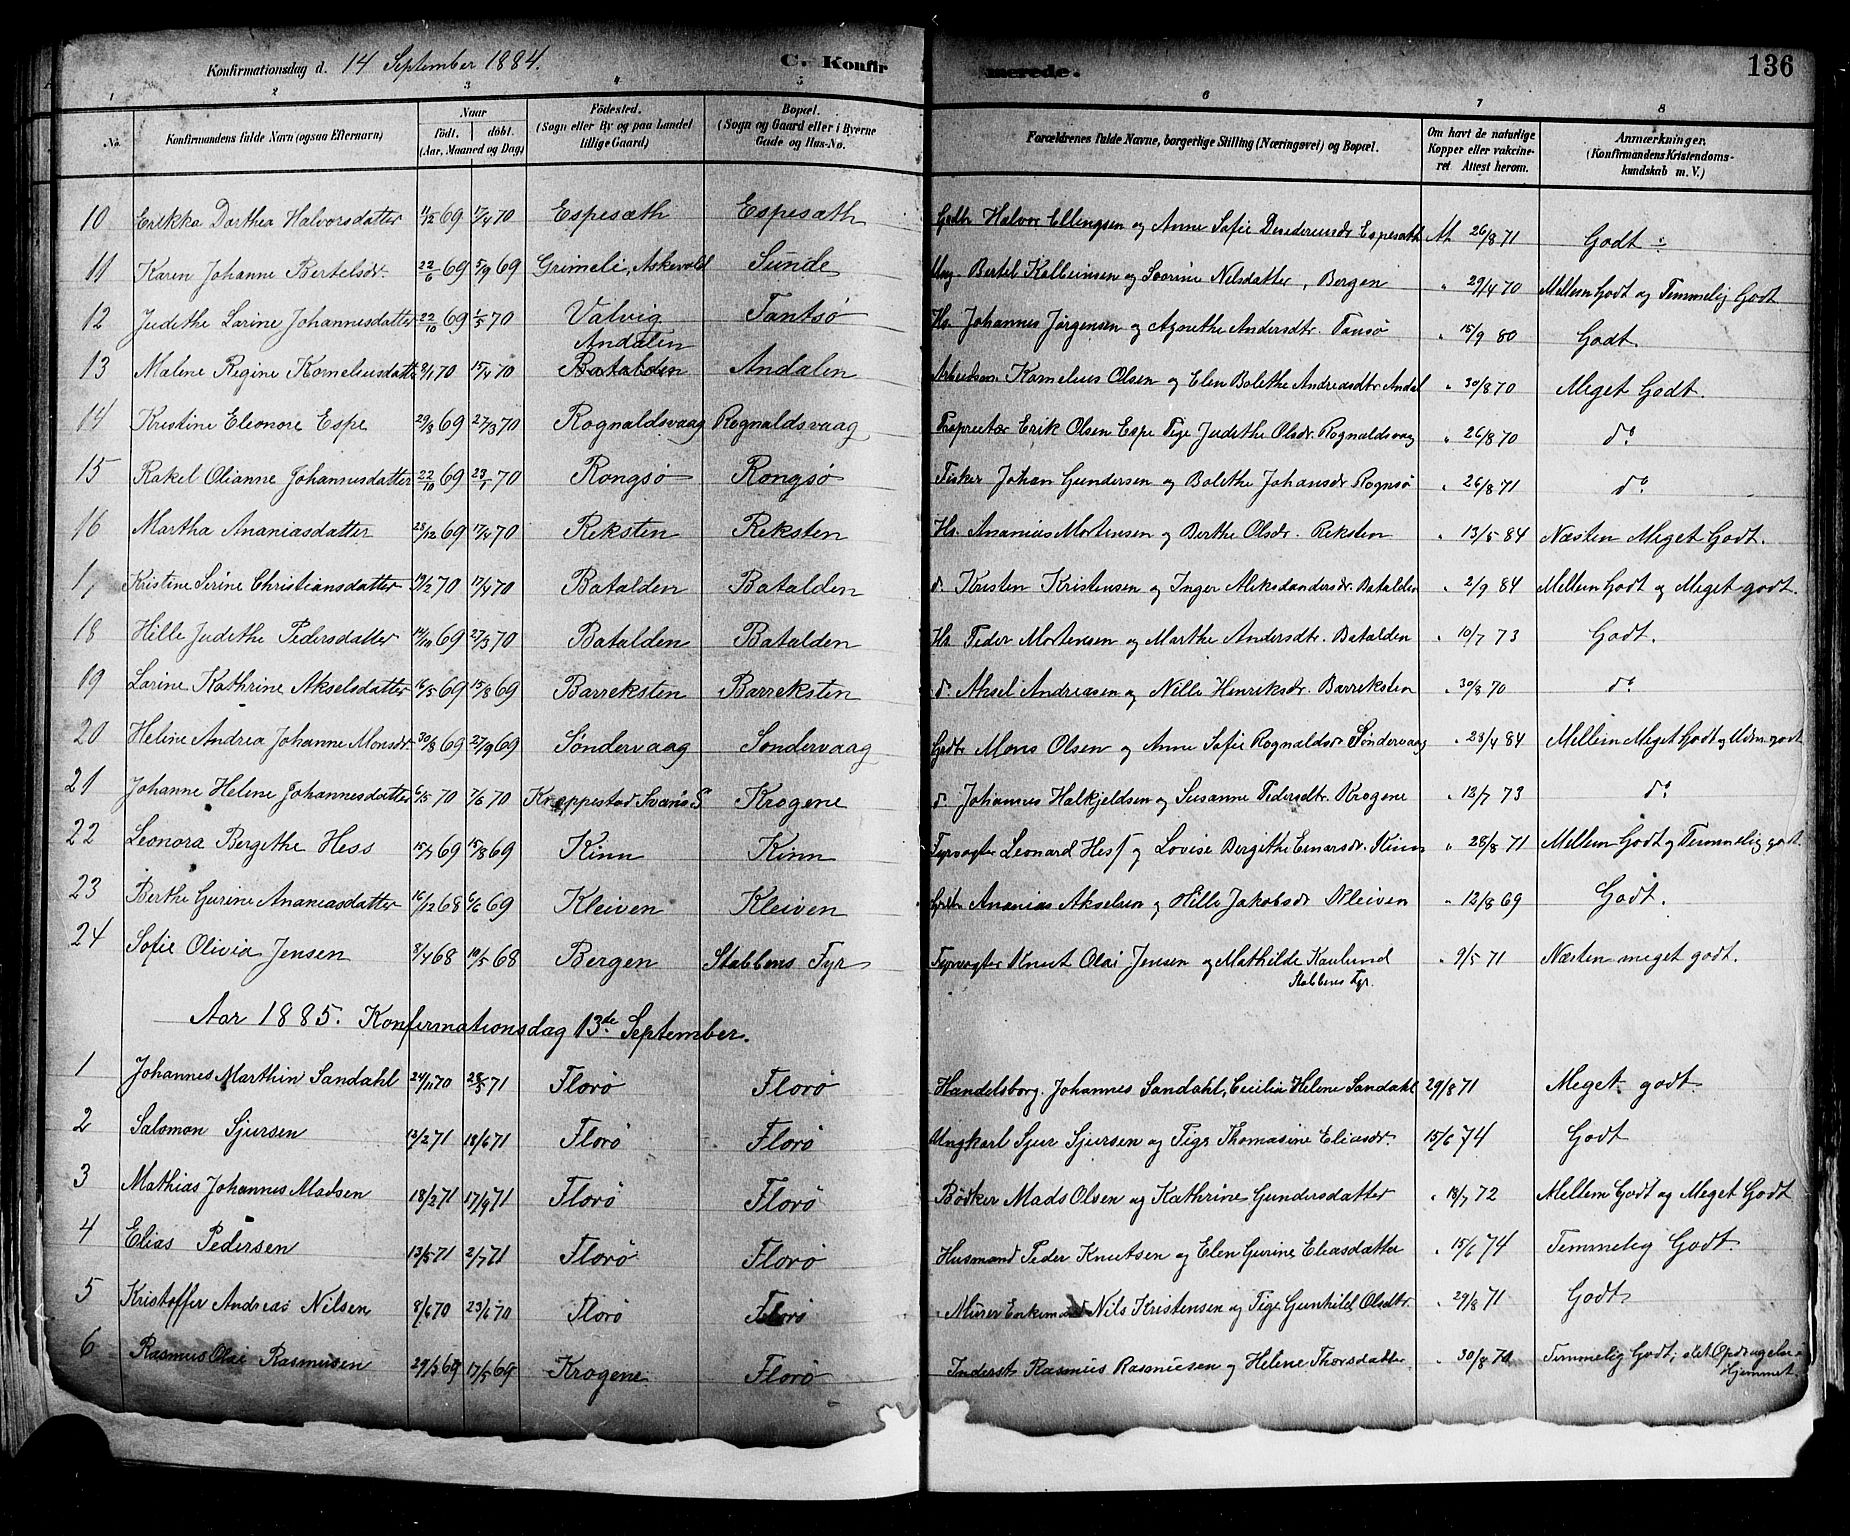 Konfirmationsdag d. 14 September 1884. C. Konfirmerede. 136
1 2 3 4 5 6 7 8
No. Konfirmandens fulde Navn (ogsaa Efternavn) Naar födt. döbt. (Aar, Maaned og Dag) Födested. (Sogn eller By og paa Landet tillige Gaard) Bopæl. (Sogn og Gaard eller i Byerne Gade og Hus-No. Forældrenes fulde Navne, borgerlige Stilling (Næringsvei) og Bopæl. Om havt de naturlige Kopper eller vakcineret Attest herom. Anmærkninger. (Konfirmandens Kristendomskundskab m. V.)
10 Erikka Dorthea Halvorsdatter 69 70 Espesæth Espesæth Halvor Ellingsen og Anne Sofie Espesæth At 26/8 71 Godt
11 Karen Johanne Bertelsdr. 22/6 69 5/9 69 Grimeli, Askevold Sunde Ung. Bertel Kolbeinsen og Severine Nilsdatter, Bergen " 29/4 70 Mellem Godt og Temmelig Godt
12 Judithe Larine Johannesdatter 22/10 69 1/5 70 Valvig Tantsø Hs. Johannes Jørgensen og Agnethe Andersdtr. Tansø " 15/9 80 Godt.
13 Malene Regine Korneliusdatter 8/1 70 15/4 70 Andalen Batalden Andalen Arbeidsm. Kornelius Olsen og Elen Bolethe Andreasdtr Andal " 30/8 70 Meget Godt.
14 Kristine Eleonore Espe 29/8 69 27/3 70 Rognaldsvaag Rognaldsvaag Proprietær Erik Olsen Espe Pige Judithe Olsdr. Rognaldsvaag " 26/8 70 do
15 Rakel Olianne Johannesdatter 22/10 69 23/1 70 Rongsø Rongsø Fisker Johan Gundersen og Bolethe Johansdr Rognsø " 26/8 71 do
16 Martha Ananiasdatter 28/12 69 17/4 70 Reksten Reksten Hs. Ananias Mortensen og Berthe Olsdr. Reksten " 13/5 84 Næsten Meget Godt.
17 Kristine Serine Christiansdatter 19/2 70 17/4 70 Batalden Batalden d. Kristen Kristensen og Inger Aleksdandersdr. Batalden " 2/9 84 Mellem Godt og Meget godt.
18 Hille Judithe Pedersdatter 14/10 69 27/3 70 Batalden Batalden Hs. Peder Mortensen og Marthe Andersdtr. Batalden " 10/7 73 Godt.
19 Larine Kathrine Akselsdatter 16/5 69 15/8 69 Barreksten Barreksten d. Aksel Andreasen og Nille Henriksdr. Barreksten " 30/8 70 do
20 Heline Andrea Johanne Monsdr. 30/8 69 27/9 69 Søndervaag Søndervaag Gdbr Mons Olsen og Anne Sofie Rognaldsdr. Søndervaag " 23/4 84 Mellem Meget Godt og Udm. godt
21 Johanne Helene Johannesdatter 6/5 70 7/6 70 Kroppestad Svanø S Krogene d. Johannes Halkjeldsen og Susanne Pedersdtr. Krogene " 12/7 73 do
22 Leonora Bergithe Hess 15/7 69 15/8 69 Kinn Kinn Fyrvogter Leonard Hess og Lovise Bergithe Einarsdr. Kinn " 28/8 71 Mellem Godt og Temmelig godt.
23 Berthe Gurine Ananiasdatter 16/12 68 6/6 69 Kleiven Kleiven Ananias Akselsen og Hille Jakobsdr Kleiven " 12/8 69 Godt.
24 Sofie Olivia Jensen 8/4 68 10/5 68 Bergen Stabbens Fyr Fyrvogter Knut Olai Jensen og Mathilde Kaulund " 9/5 71 Næsten meget godt.
Stabbens Fyr.
Aar 1885. Konfirmationsdag 13de September.
1 Johannes Marthin Sandahl 24/11 70 28/5 71 Florø Florø Handelsborg. Johannes Sandahl, Cecilia Helene Sandahl 29/8 71 Meget godt
2 Salomon Sjursen 13/2 71 18/6 71 Florø Florø Ungkarl Sjur Sjursen og Pige Thomasine Eliasdr. 15/6 74 Godt
3 Mathias Johannes Madsen 18/2 71 17/9 71 Florø Florø Bødker Mads Olsen og Kathrine Gundersdatter " 18/7 72 Mellem Godt og Meget Godt
4 Elias Pedersen 13/5 71 2/7 71 Florø Florø Husmand Peder Knutsen og Elen Gurine Eliasdatter " 15/6 74 Temmelig Godt.
5 Kristoffer Andreas Nilsen 8/6 70 23/6 70 Florø Florø Murer Enkemand Nils Kristensen og Pige Gunhild Olsdtr. " 29/8 71 Godt
6 Rasmus Olai Rasmusen 29/3 69 17/5 69 Krogene Florø Inderst Rasmus Rasmusen og Helene Thorsdatter " 30/8 70 Temmelig Godt; slet Opdragelse i Hjemmet.